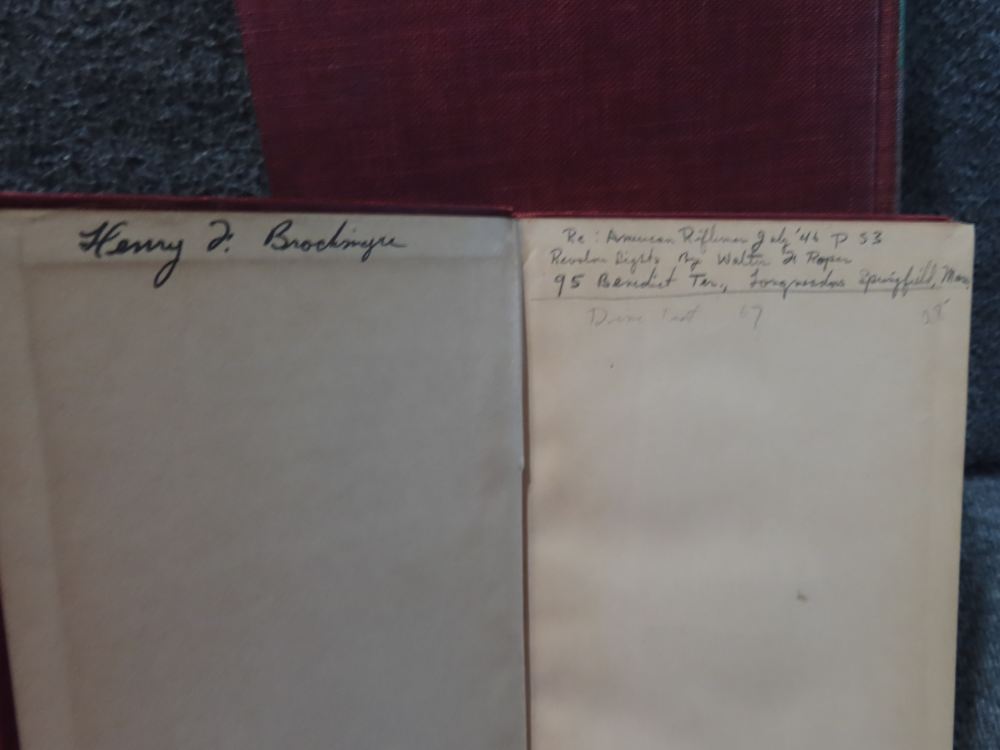 Henry F. Brockmeyer
Re: American Rifleman July '46 P 53
Revolver Sights By Walter F Roper
95 Benedict Ter., Longmeadow Springfield, Mass
67